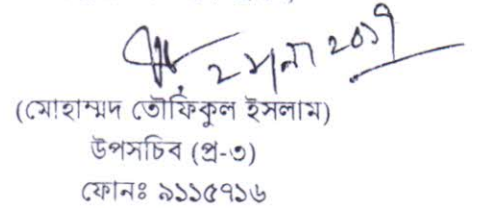 (মোহাম্মদ তৌফিকুল ইসলাম)
উপসচিব (প্র-৩)
ফোনঃ ৯১১৫৭১৬